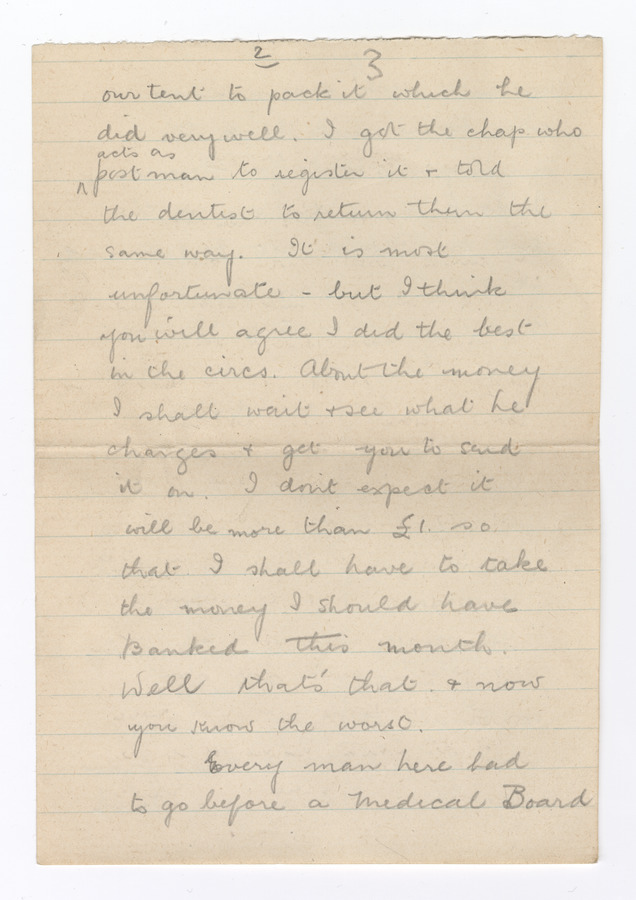 2 3
our tent to pack it which he
did very well. I got the chap who
acts as
^ postman to register it + told
the dentist to return them the
same way. It is most
unfortunate - but I think
you will agree I did the best
in the circs. About the money
I shall wait + see what he
charges + get you to send
it on. I dont expect it
will be more than £1. so
that I shall have to take
the money I should have
Banked this month.
Well that's that. + now
you know the worst.
Every man here had
to go before a Medical Board